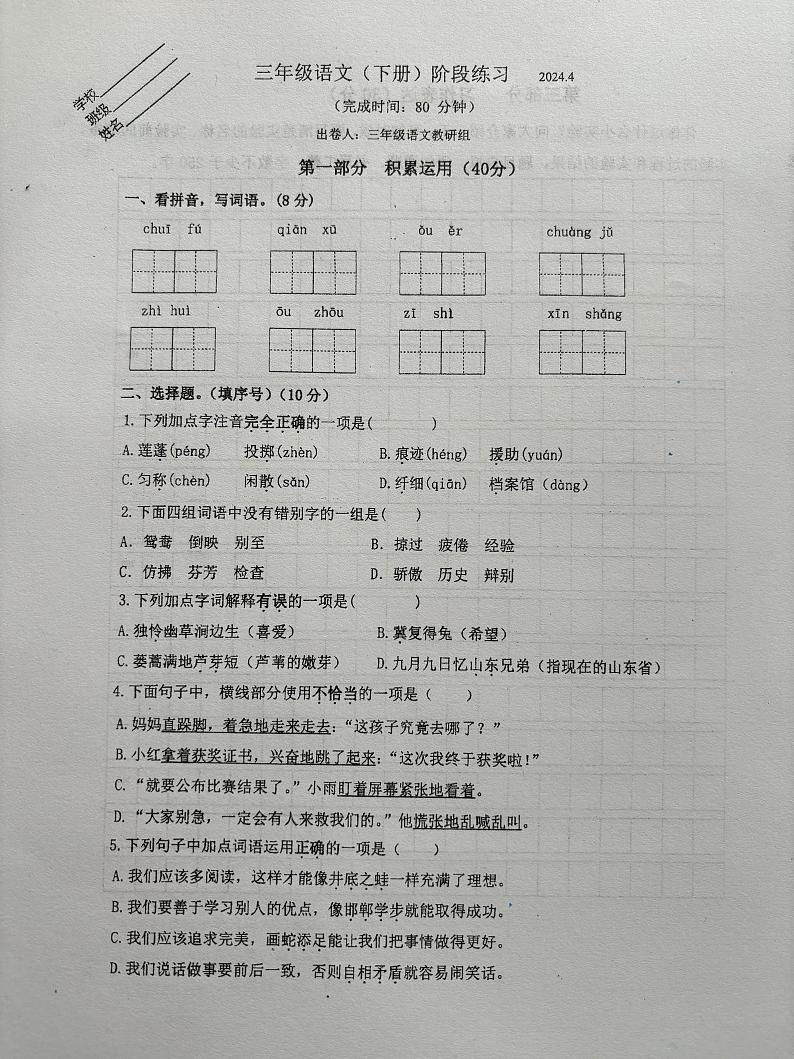 学校
班级
姓名
三年级语文（下册）阶段练习 2024.4
（完成时间：80 分钟）
出卷人：三年级语文教研组
第一部分 积累运用（40分）
一、看拼音，写词语。（8 分）
chuī fú qiān xū ǒu ěr chuàng jǔ
zhì huì ōu zhōu zī shì xīn shǎng
二、选择题。（填序号）（10 分）
1.下列加点字注音完全正确的一项是( )
A.莲蓬(péng) 投掷(zhèn) B.痕迹(héng) 援助(yuán)
C.匀称(chèn) 闲散(sǎn) D.纤细(qiān) 档案馆（dàng）
2.下面四组词语中没有错别字的一组是( )
A．鸳鸯 倒映 别至 B．掠过 疲倦 经验
C．仿拂 芬芳 检查 D．骄傲 历史 辩别
3.下列加点字词解释有误的一项是( )
A.独怜幽草涧边生（喜爱） B.冀复得兔（希望）
C.蒌蒿满地芦芽短（芦苇的嫩芽） D.九月九日忆山东兄弟（指现在的山东省）
4.下面句子中，横线部分使用不恰当的一项是（ ）
A.妈妈直跺脚，着急地走来走去：“这孩子究竟去哪了？”
B.小红拿着获奖证书，兴奋地跳了起来：“这次我终于获奖啦！”
C.“就要公布比赛结果了。”小雨盯着屏幕紧张地看着。
D.“大家别急，一定会有人来救我们的。”他慌张地乱喊乱叫。
5.下列句子中加点词语运用正确的一项是（ ）
A.我们应该多阅读，这样才能像井底之蛙一样充满了理想。
B.我们要善于学习别人的优点，像邯郸学步就能取得成功。
C.我们应该追求完美，画蛇添足能让我们把事情做得更好。
D.我们说话做事要前后一致，否则自相矛盾就容易闹笑话。